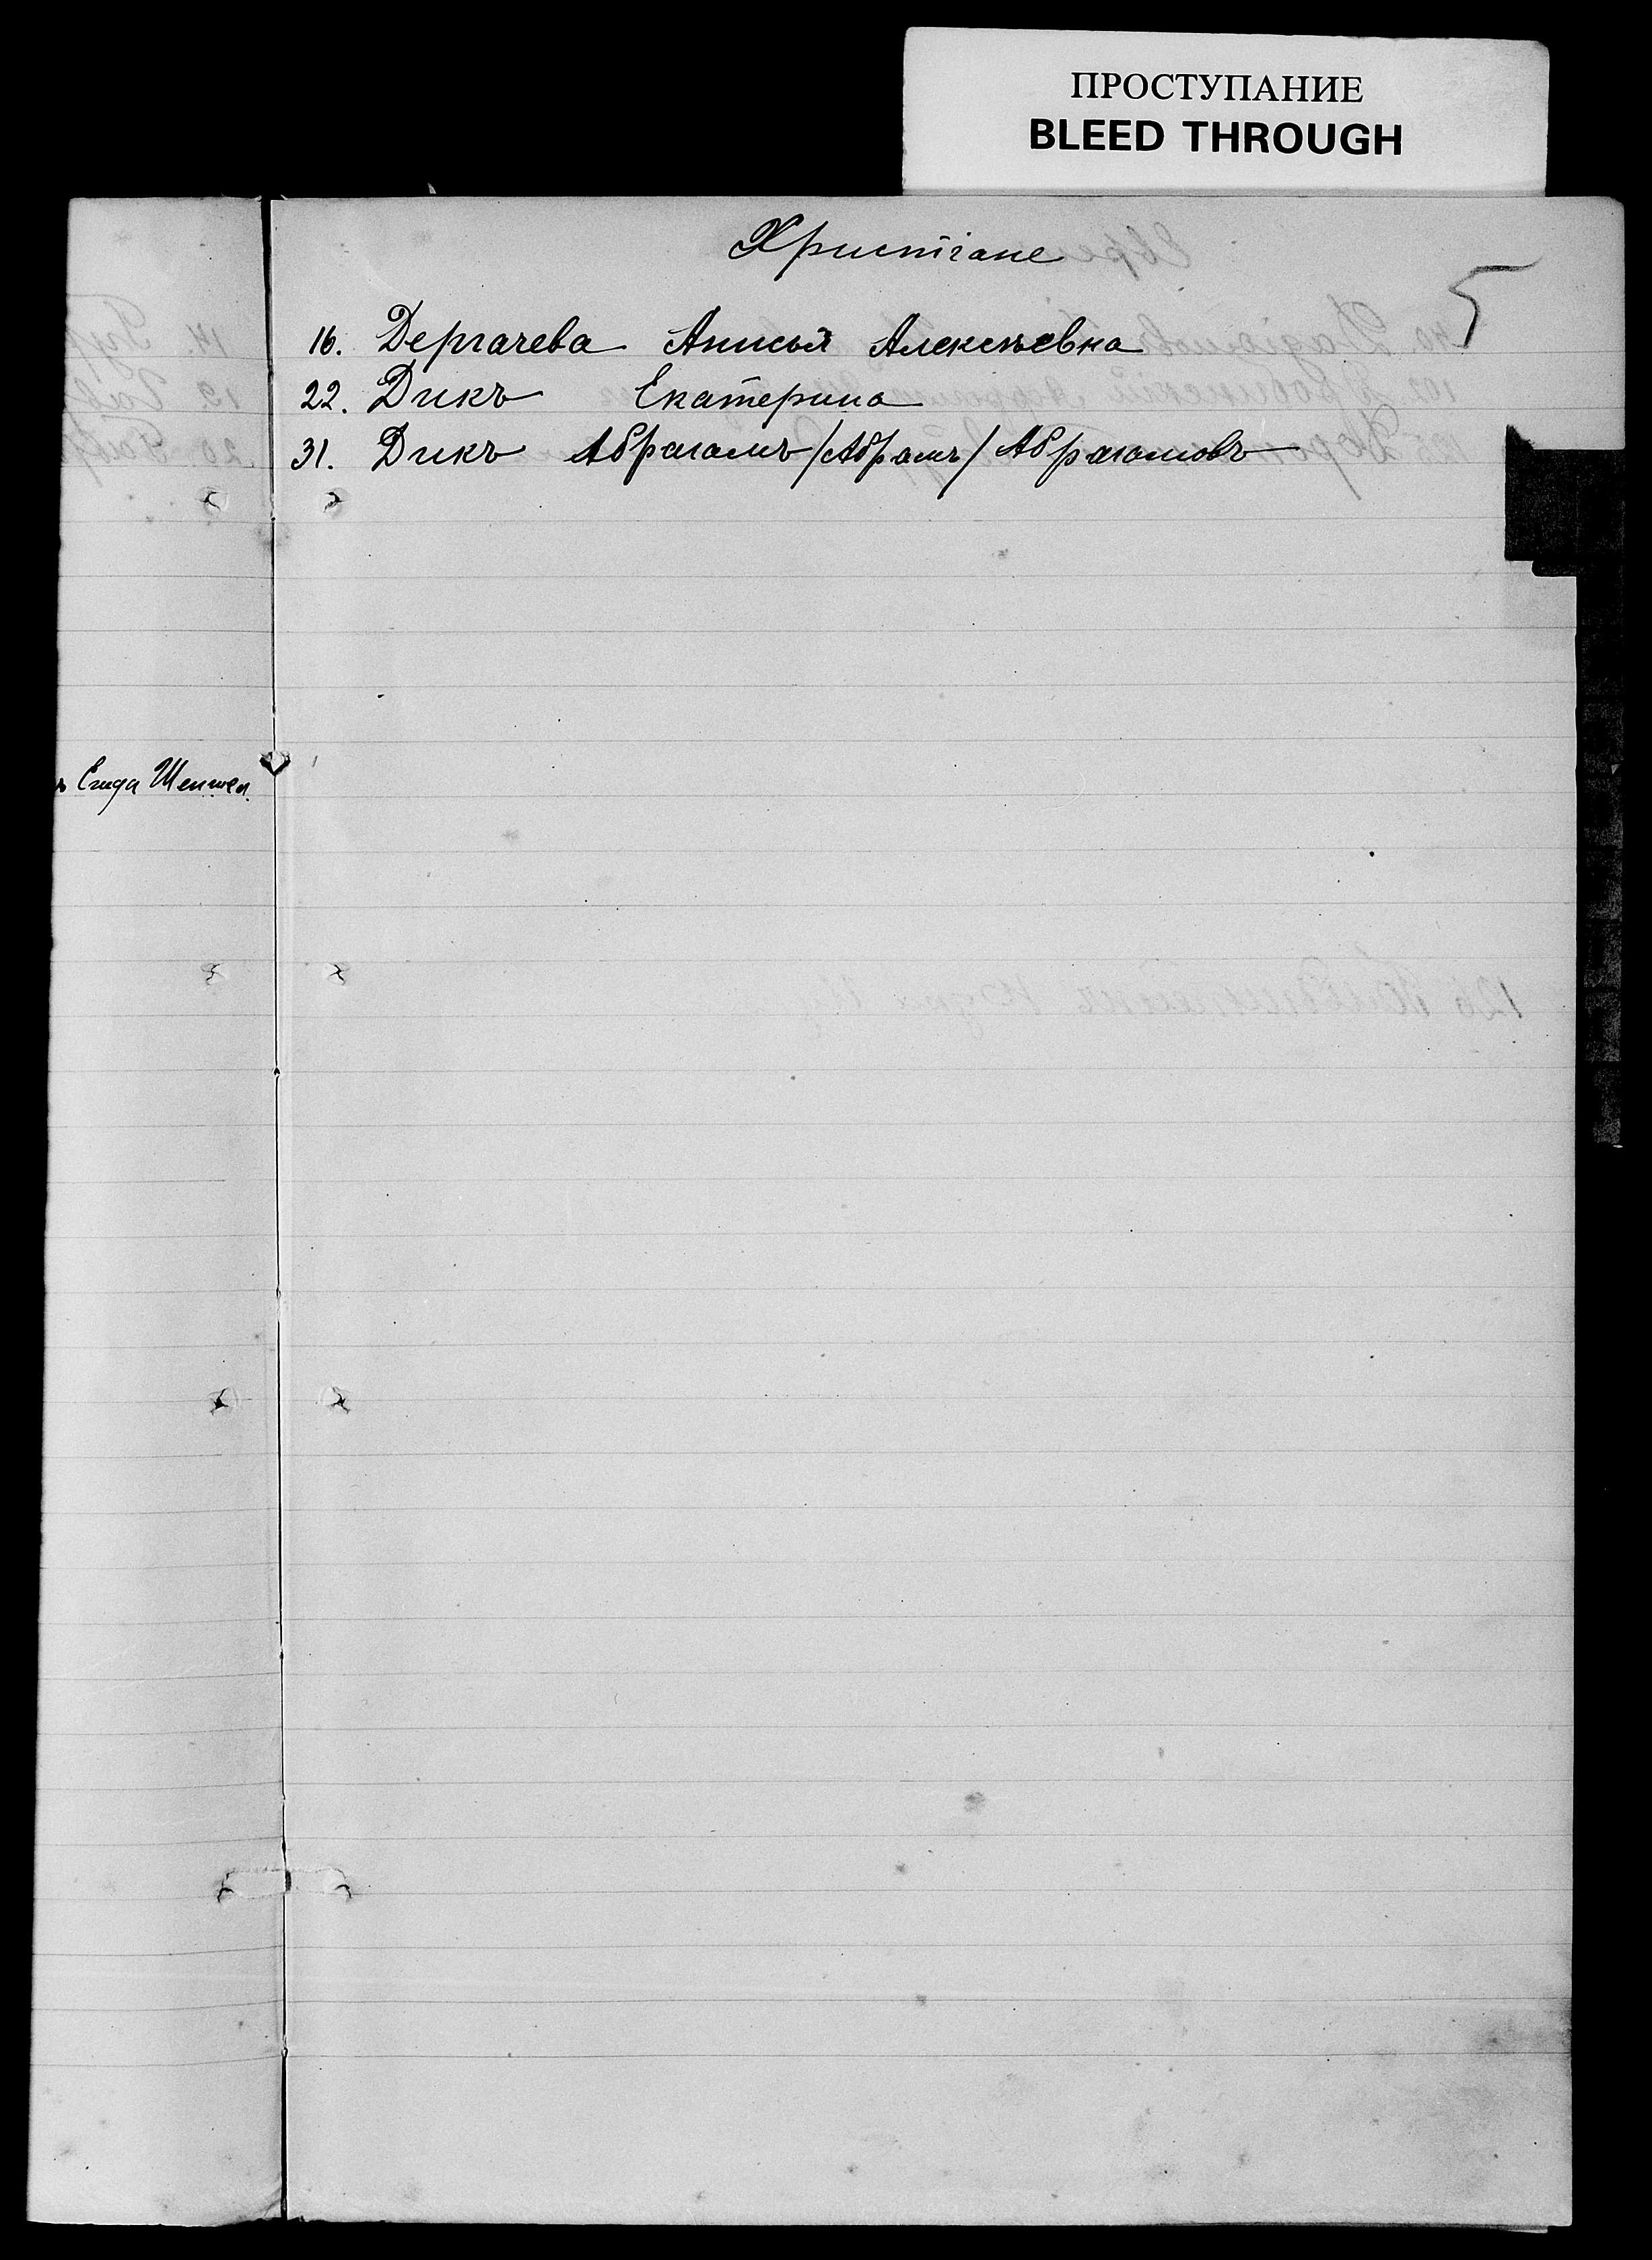 ПРОСТУПАНИЕ
BLEED THROUGH
Христіане
5
16. Дергачева Анисья Алексѣевна
22. Дикъ Екатерина
31. Дикъ Абрагамъ /Абрамъ/ Абрагамовъ